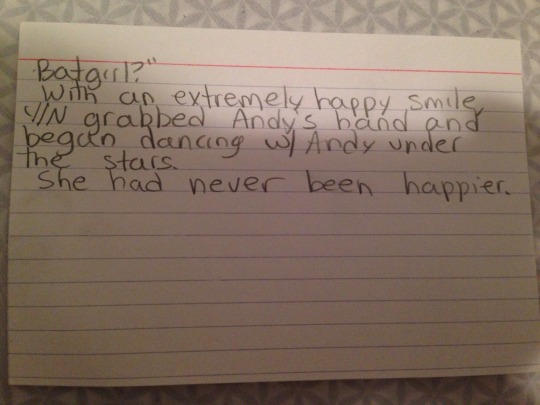 Batgirl?"
With an extremely happy smile,
Y/N grabbed Andy's hand and
began dancing w/ Andy under
the stars.
She had never been happier.